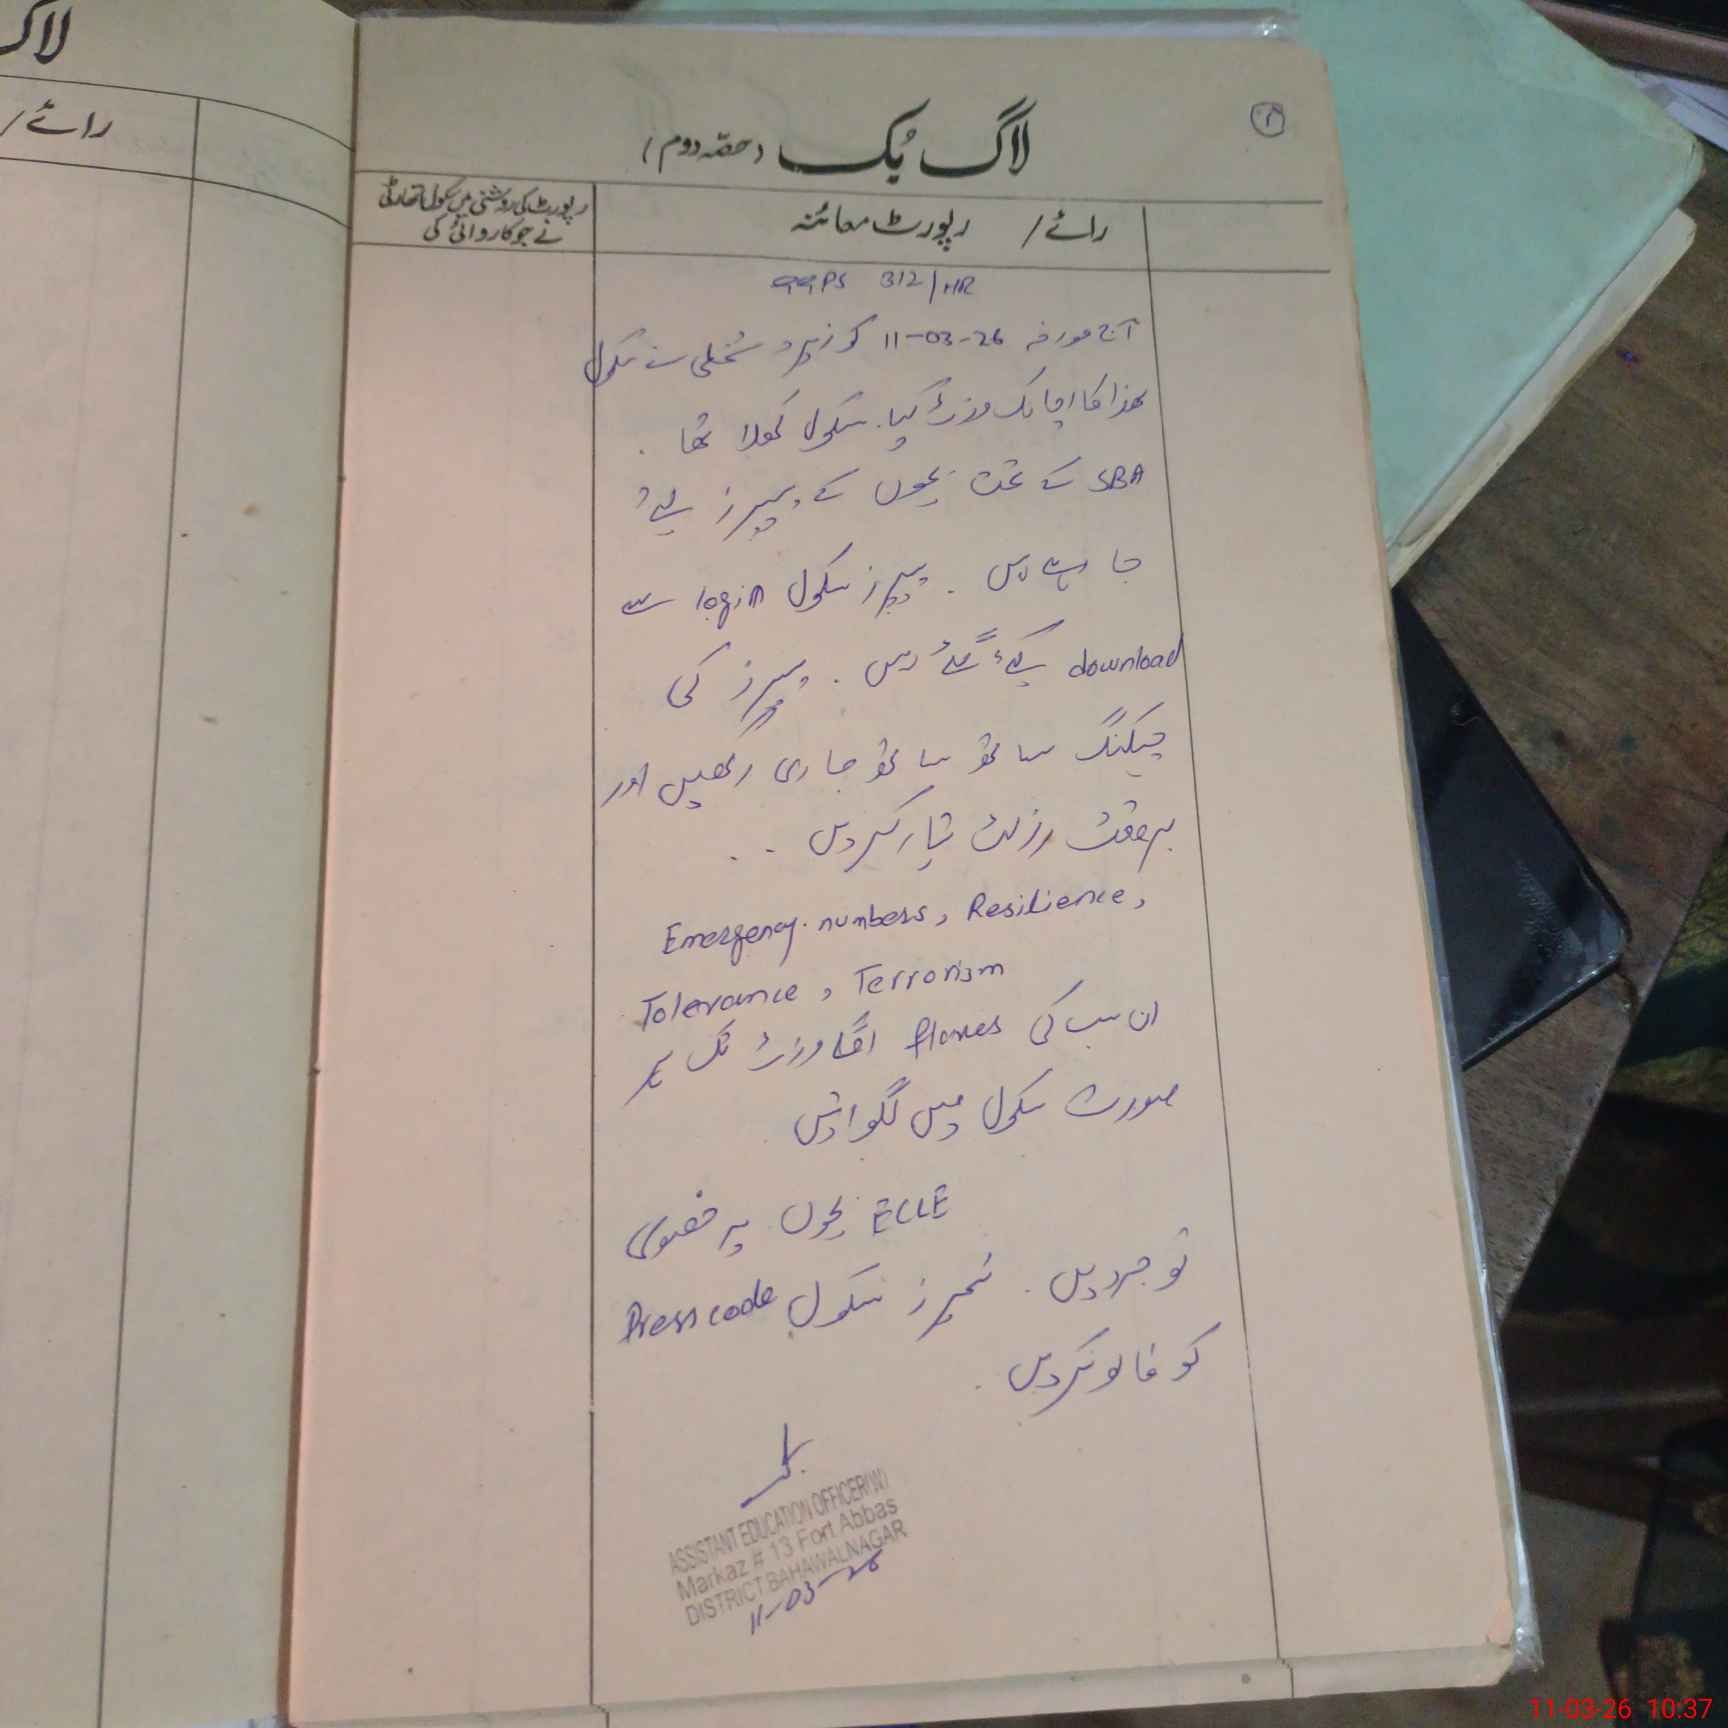 لاگ بُک (حصّہ دوم)
رائے / رپورٹ معائنہ
رپورٹ کی روشنی میں سکول اتھارٹی
نے جو کاروائی کی
لاگ
رائے /
GGPS 312/HR
آج مورخہ 11-03-26 کو زیر دستخطی نے سکول
ھذا کا اچانک وزٹ کیا. سکول کھلا تھا.
SBA کے تحت بچوں کے پیپرز لیے
جا رہے ہیں. پیپرز سکول login سے
download کیے گئے ہیں. پیپرز کی
چیکنگ ساتھ ساتھ جاری رکھیں اور
بروقت رزلٹ تیار کریں..
Emergency numbers, Resilience,
Tolerance, Terrorism
ان سب کی flexes اگلے وزٹ تک ہر
صورت سکول میں لگوائیں
ECCE بچوں پر خصوصی
توجہ دیں. ٹیچرز سکول Dress code
کو فالو کریں.
ASSISTANT EDUCATION OFFICER(W)
Markaz # 13 Fort Abbas
DISTRICT BAHAWALNAGAR
11-03-26
11-03-26 10:37